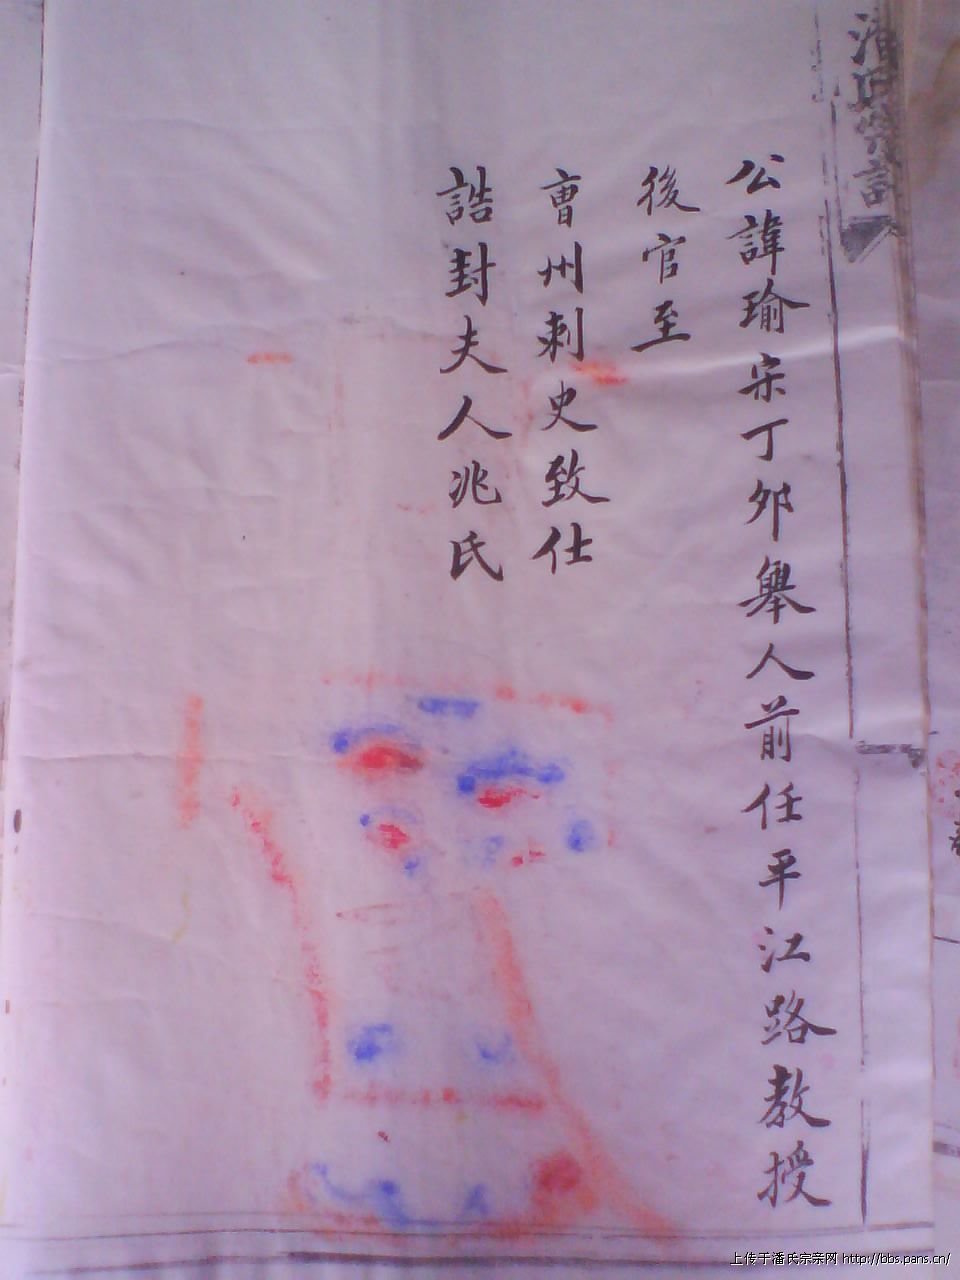 公諱瑜宋丁夘舉人前任平江路教授
後官至
曺州刺史致仕
誥封夫人兆氏
上传于潘氏宗亲网 http://bbs.pans.cn/